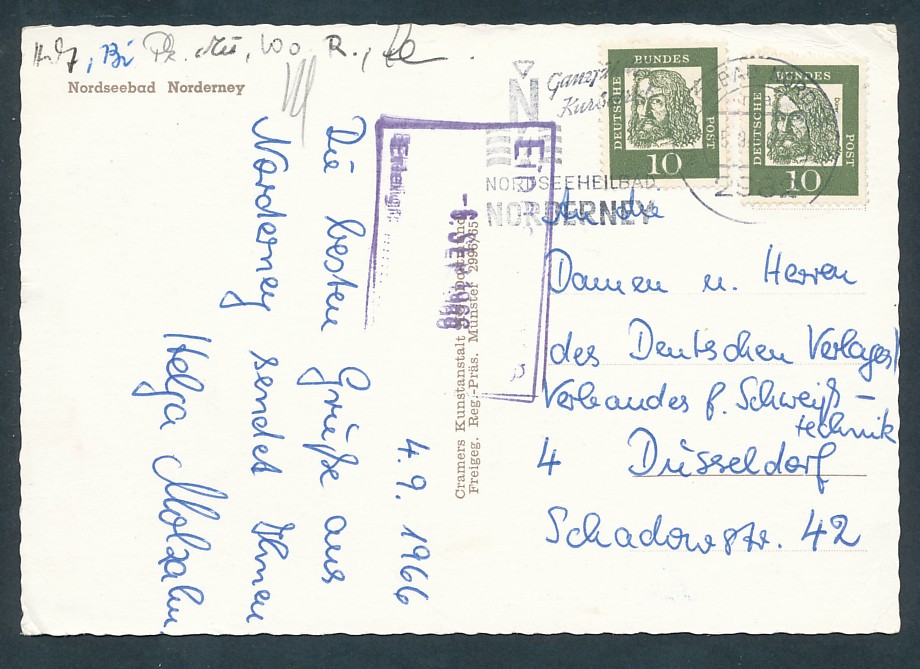 Nordseebad Norderney
4. 9. 1966
Die besten Grüße aus
Norderney sendet Ihnen
Helga
Cramers Kunstanstalt
Freigeg. Reg.-Präs. Münster 2996/65
-6. SEP. 1966
Erledigt:
N
Ganzj.
NORDSEEHEILBAD
NORDERNEY
2982
DEUTSCHE BUNDES POST
10
DEUTSCHE BUNDES POST
10
An die
Damen u. Herren
des Deutschen Verlages/
Verbandes f. Schweiß-
technik
4 Düsseldorf
Schadowstr. 42